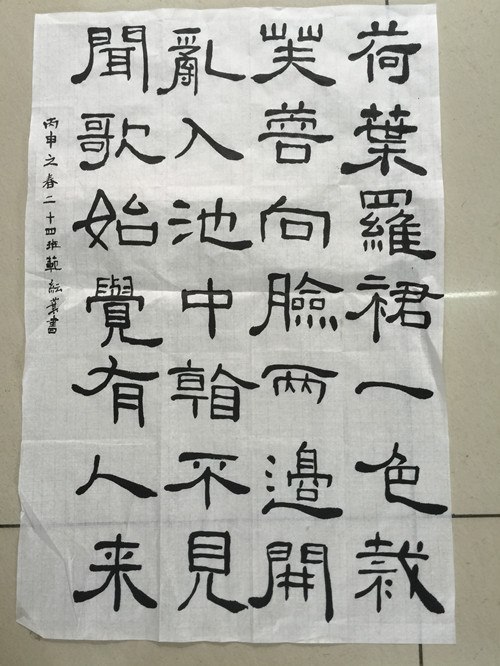 荷葉羅裙一色裁
芙蓉向臉兩邊開
亂入池中看不見
聞歌始覺有人来
丙申之春二十四班範紜書